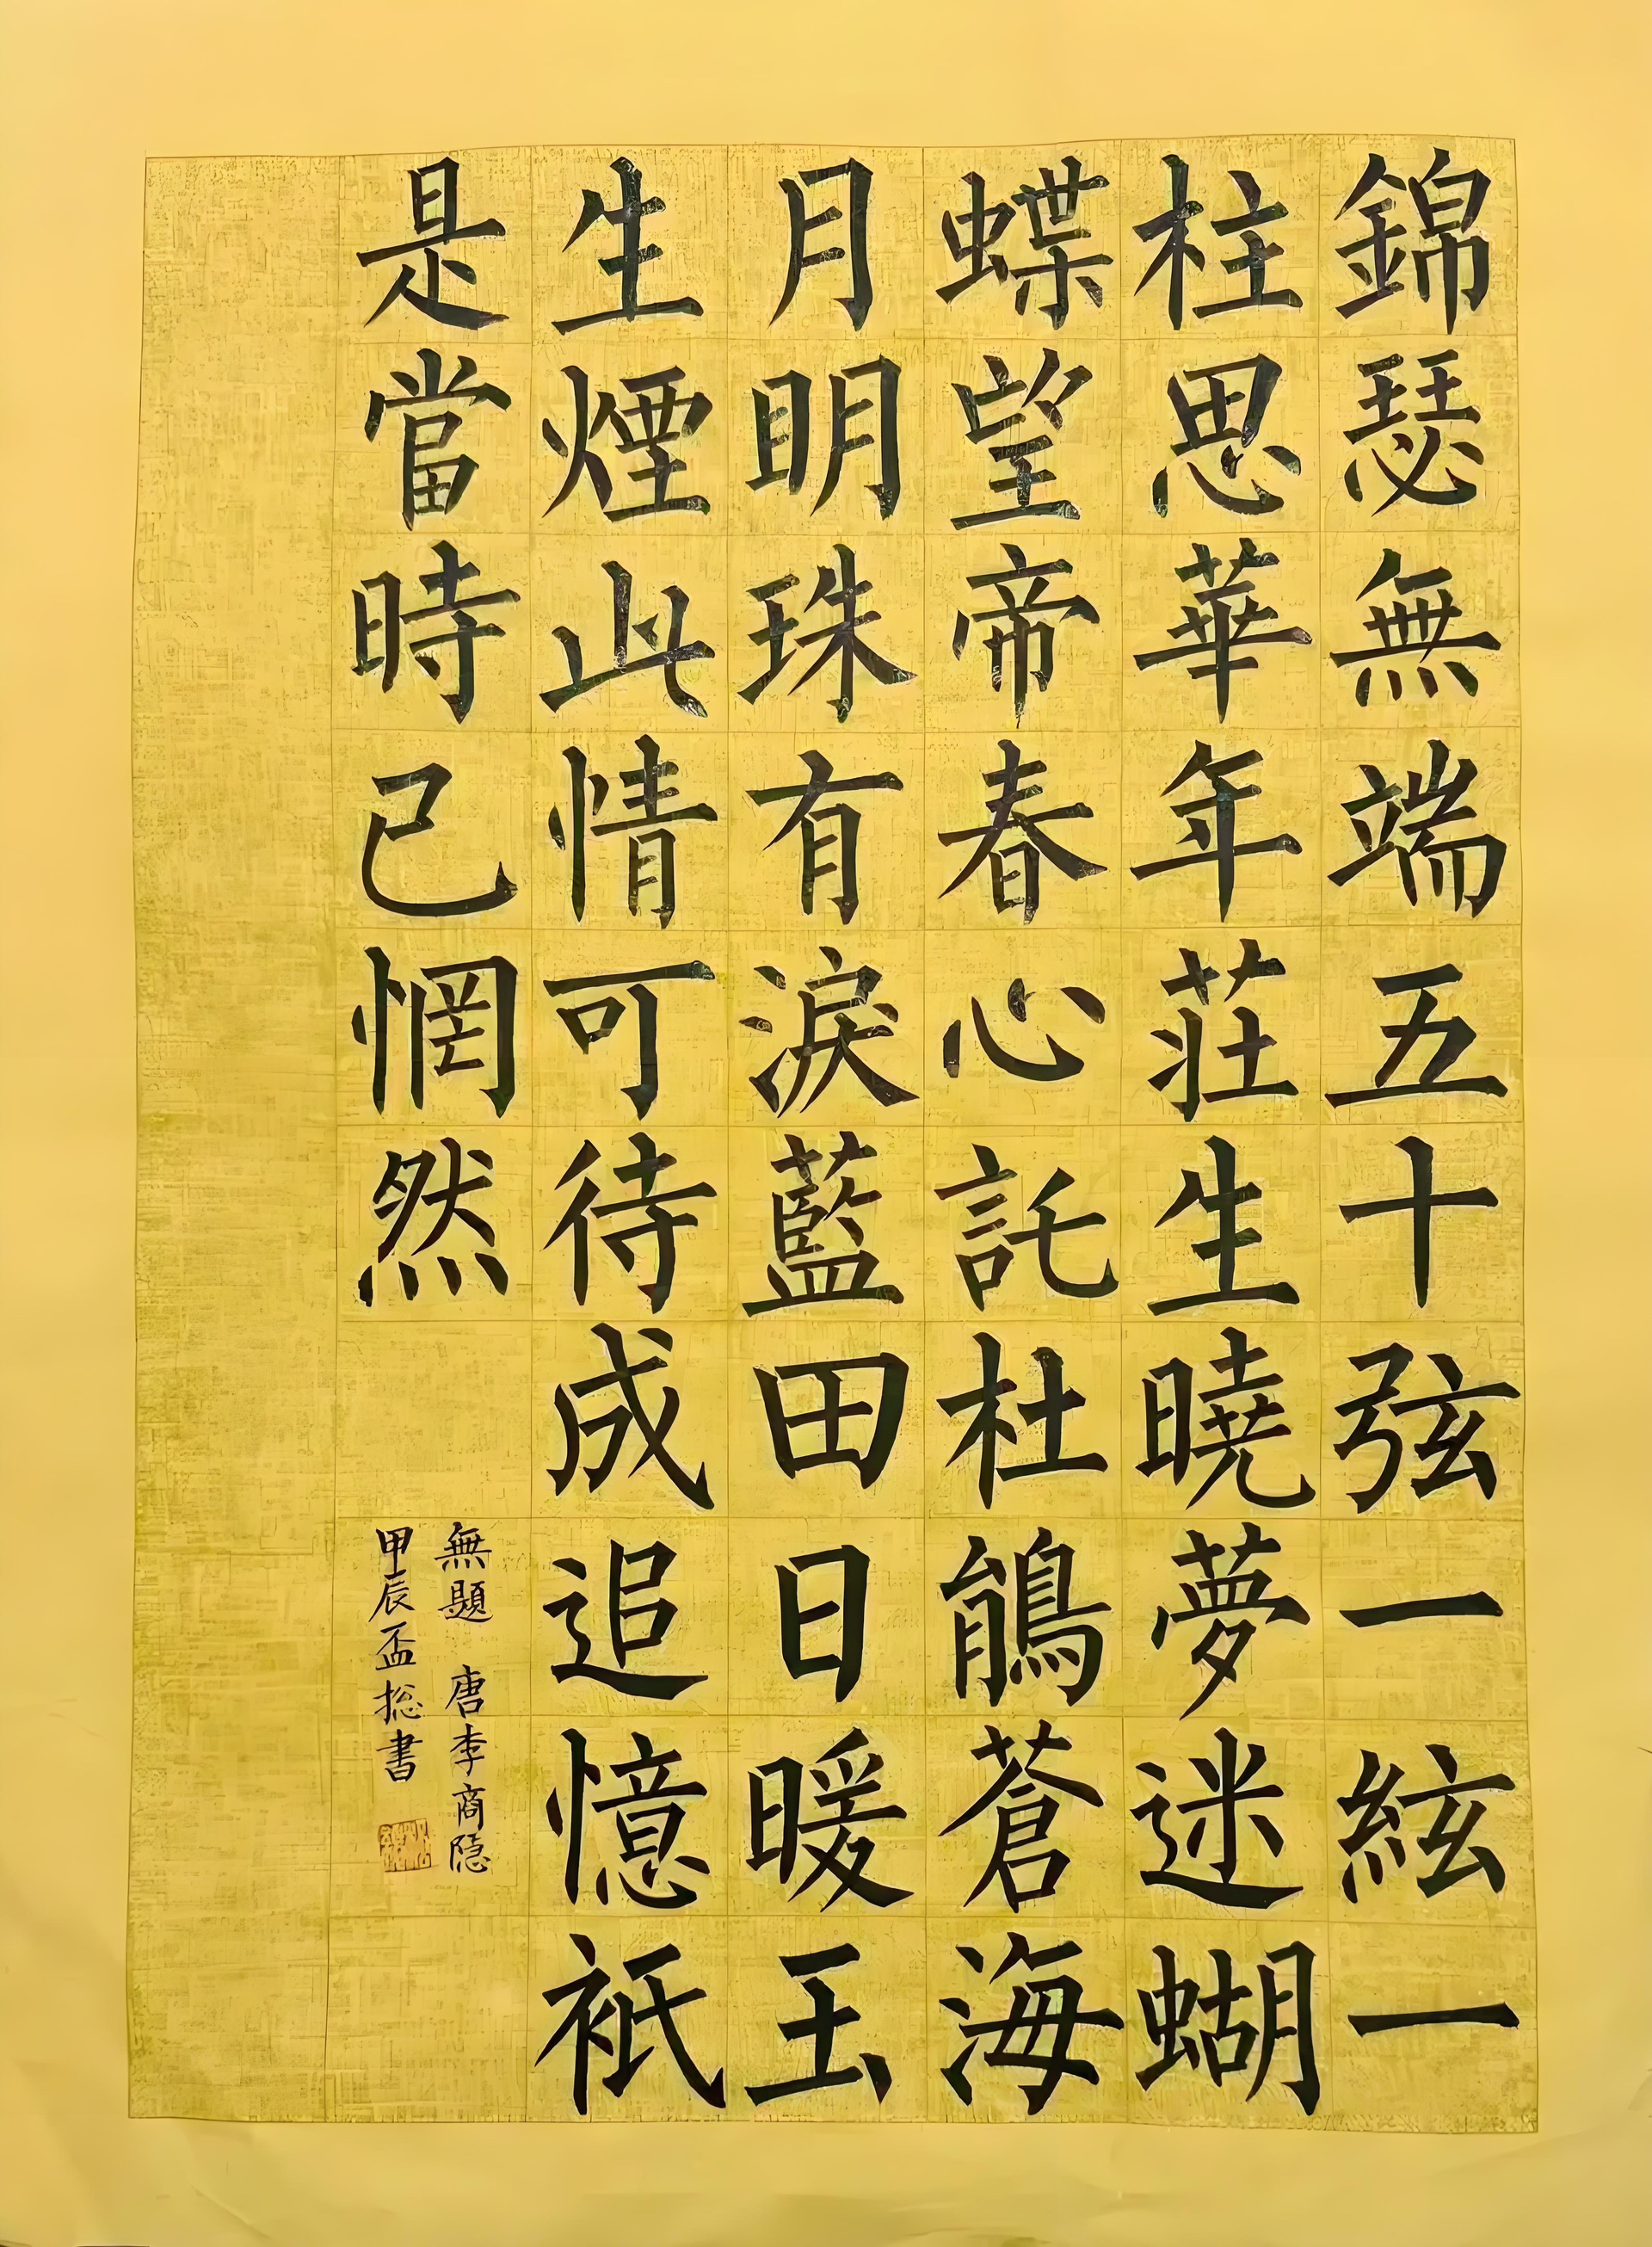 錦瑟無端五十弦一絃一
柱思華年莊生曉夢迷蝴
蝶望帝春心託杜鵑蒼海
月明珠有淚藍田日暖玉
生煙此情可待成追憶祇
是當時己惘然
無題 唐李商隐
甲辰孟揔書